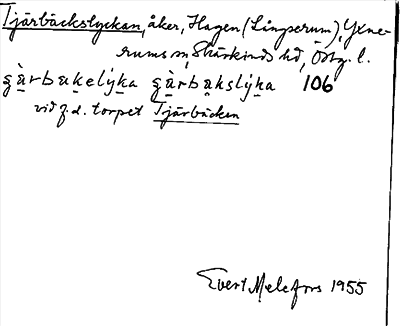 Tjärbäckslyckan, åker, Hagen (Långserum), Yxne-
rums sn, Skärkinds hd, Östg. l.
gärbakelýka gàrbakslýka 106
vid f. d. torpet Tjärbäcken
Evert Melefors 1955